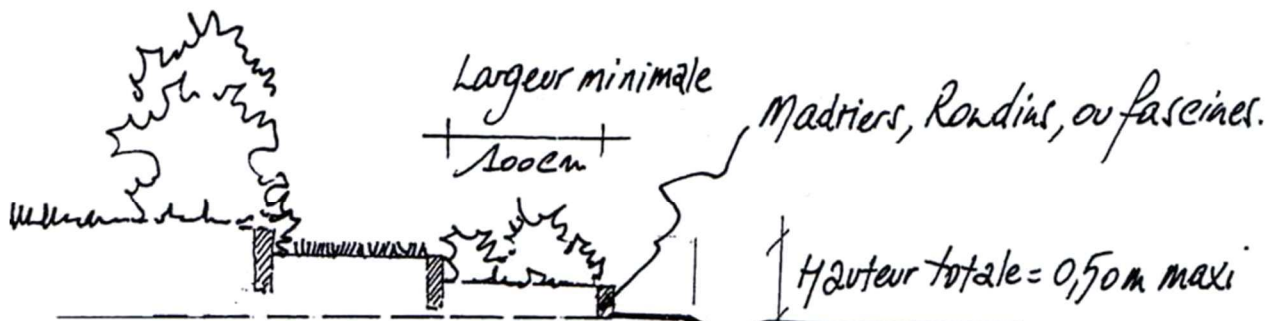 Largeur minimale
100cm
Madriers, Rondins, ou fascines.
Hauteur totale = 0,50m maxi